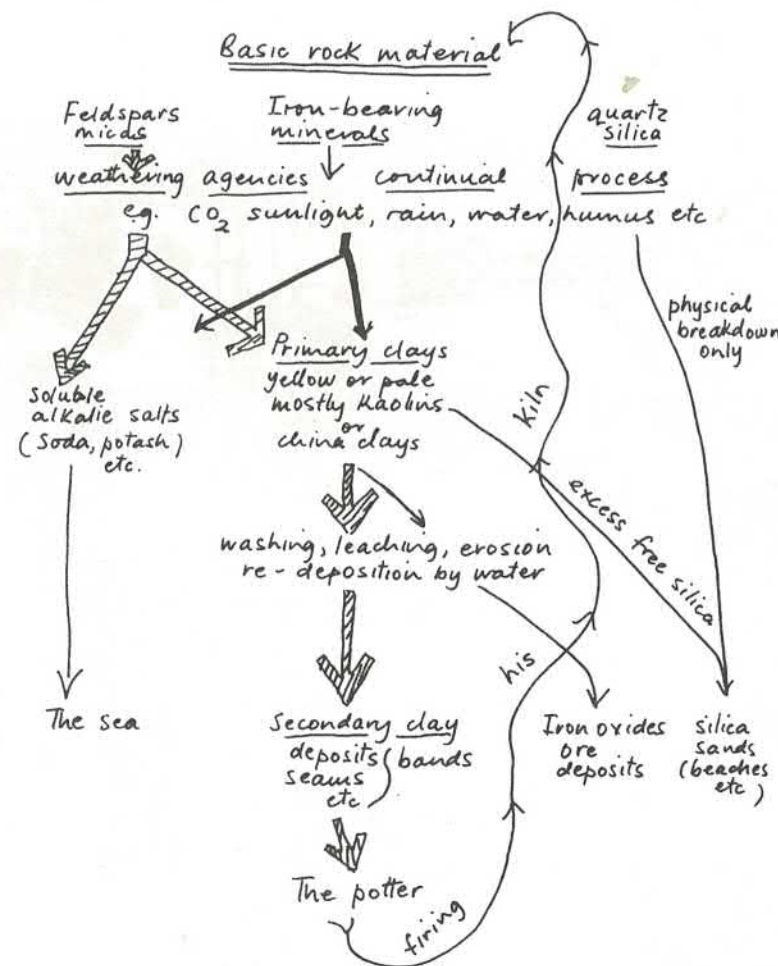 Basic rock material
Feldspars
micas
Iron-bearing
minerals
quartz
silica
weathering agencies continual process
e.g. CO2 sunlight, rain, water, humus etc
physical
breakdown
only
Primary clays
yellow or pale
mostly Kaolins
or
china clays
Soluble
alkalie salts
(Soda, potash)
etc.
kiln
excess free silica
washing, leaching, erosion
re-deposition by water
his
The sea
Secondary clay
deposits
seams
etc
bands
Iron oxides
ore
deposits
silica
sands
(beaches
etc)
The potter
firing